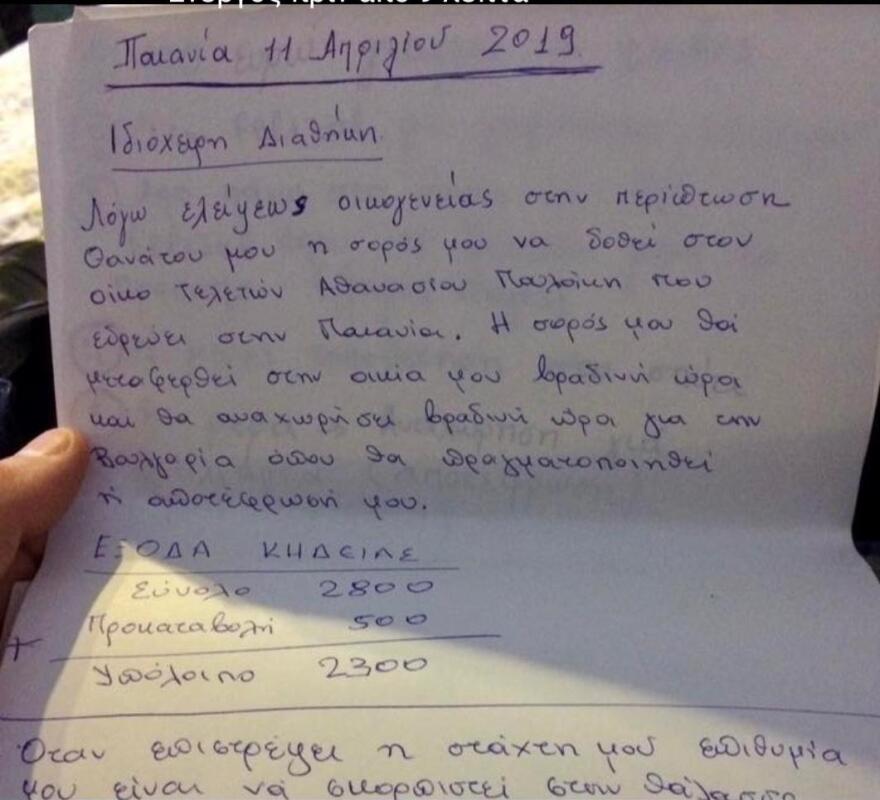 Παιανία 11 Απριλίου 2019
Ιδιόχειρη Διαθήκη
Λόγω ελείψεως οικογενείας στην περίπτωση
θανάτου μου η σορός μου να δοθεί στον
οίκο Τελετών Αθανασίου Παυλάκη που
εδρεύει στην Παιανία. Η σορός μου θα
μεταφερθεί στην οικία μου βραδινή ώρα
και θα αναχωρήσει βραδινή ώρα για την
Βουλγαρία όπου θα πραγματοποιηθεί
ή αποτέφρωσή μου.
ΕΞΟΔΑ ΚΗΔΕΙΑΣ
Σύνολο 2800
Προκαταβολή 500
+
Υπόλοιπο 2300
Όταν επιστρέψει η στάχτη μου επιθυμία
μου είναι να σκορπιστεί στην θάλασσα